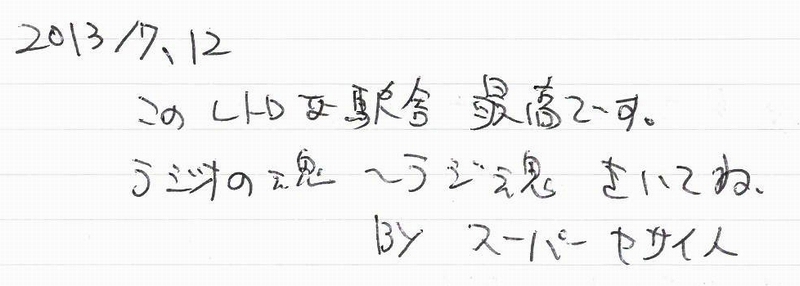 2013/7、12
このレトロな駅舎 最高です。
ラジオの魂 〜ラジ魂 きいてね、
BY スーパーヤサイ人